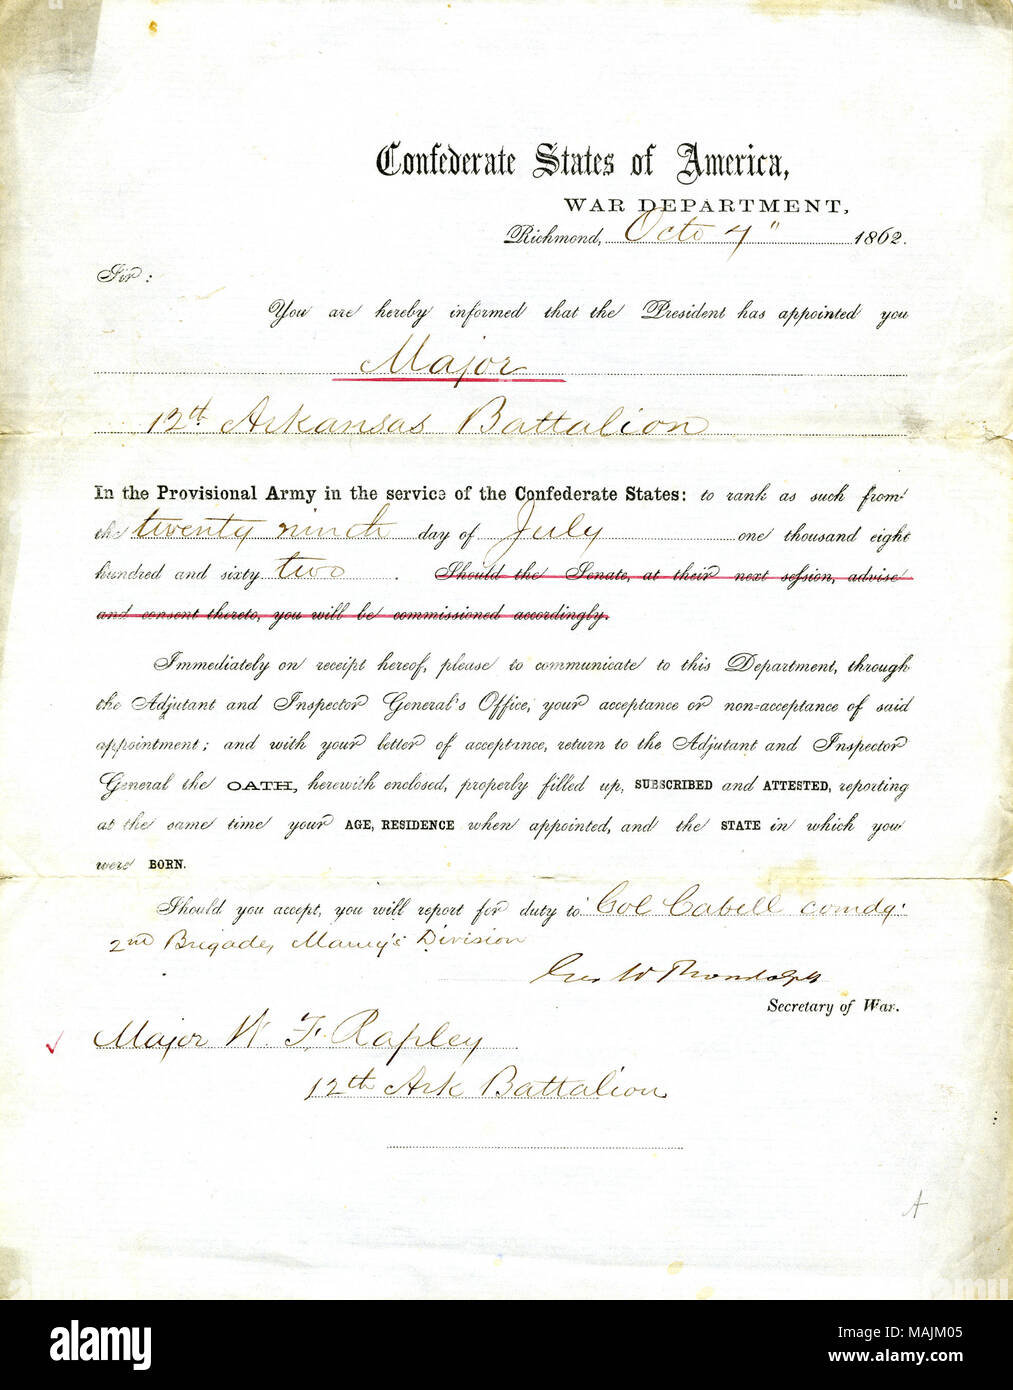 Confederate States of America,
WAR DEPARTMENT,
Richmond, Octo 7" 1862.
Sir:
You are hereby informed that the President has appointed you
Major
12th Arkansas Battalion
In the Provisional Army in the service of the Confederate States: to rank as such from
the twenty ninth day of July one thousand eight
hundred and sixty two . Should the Senate, at their next session, advise
and consent thereto, you will be commissioned accordingly.
Immediately on receipt hereof, please to communicate to this Department, through
the Adjutant and Inspector General's Office, your acceptance or non-acceptance of said
appointment; and with your letter of acceptance, return to the Adjutant and Inspector
General the OATH, herewith enclosed, properly filled up, SUBSCRIBED and ATTESTED, reporting
at the same time your AGE, RESIDENCE when appointed, and the STATE in which you
were BORN.
Should you accept, you will report for duty to Col Cabell comdg.
2nd Brigade, Maury's Division
Geo W Randolph
Secretary of War.
Major W. F. Rapley
12th Ark Battalion
A
alamy
Image ID: MAJM05
www.alamy.com